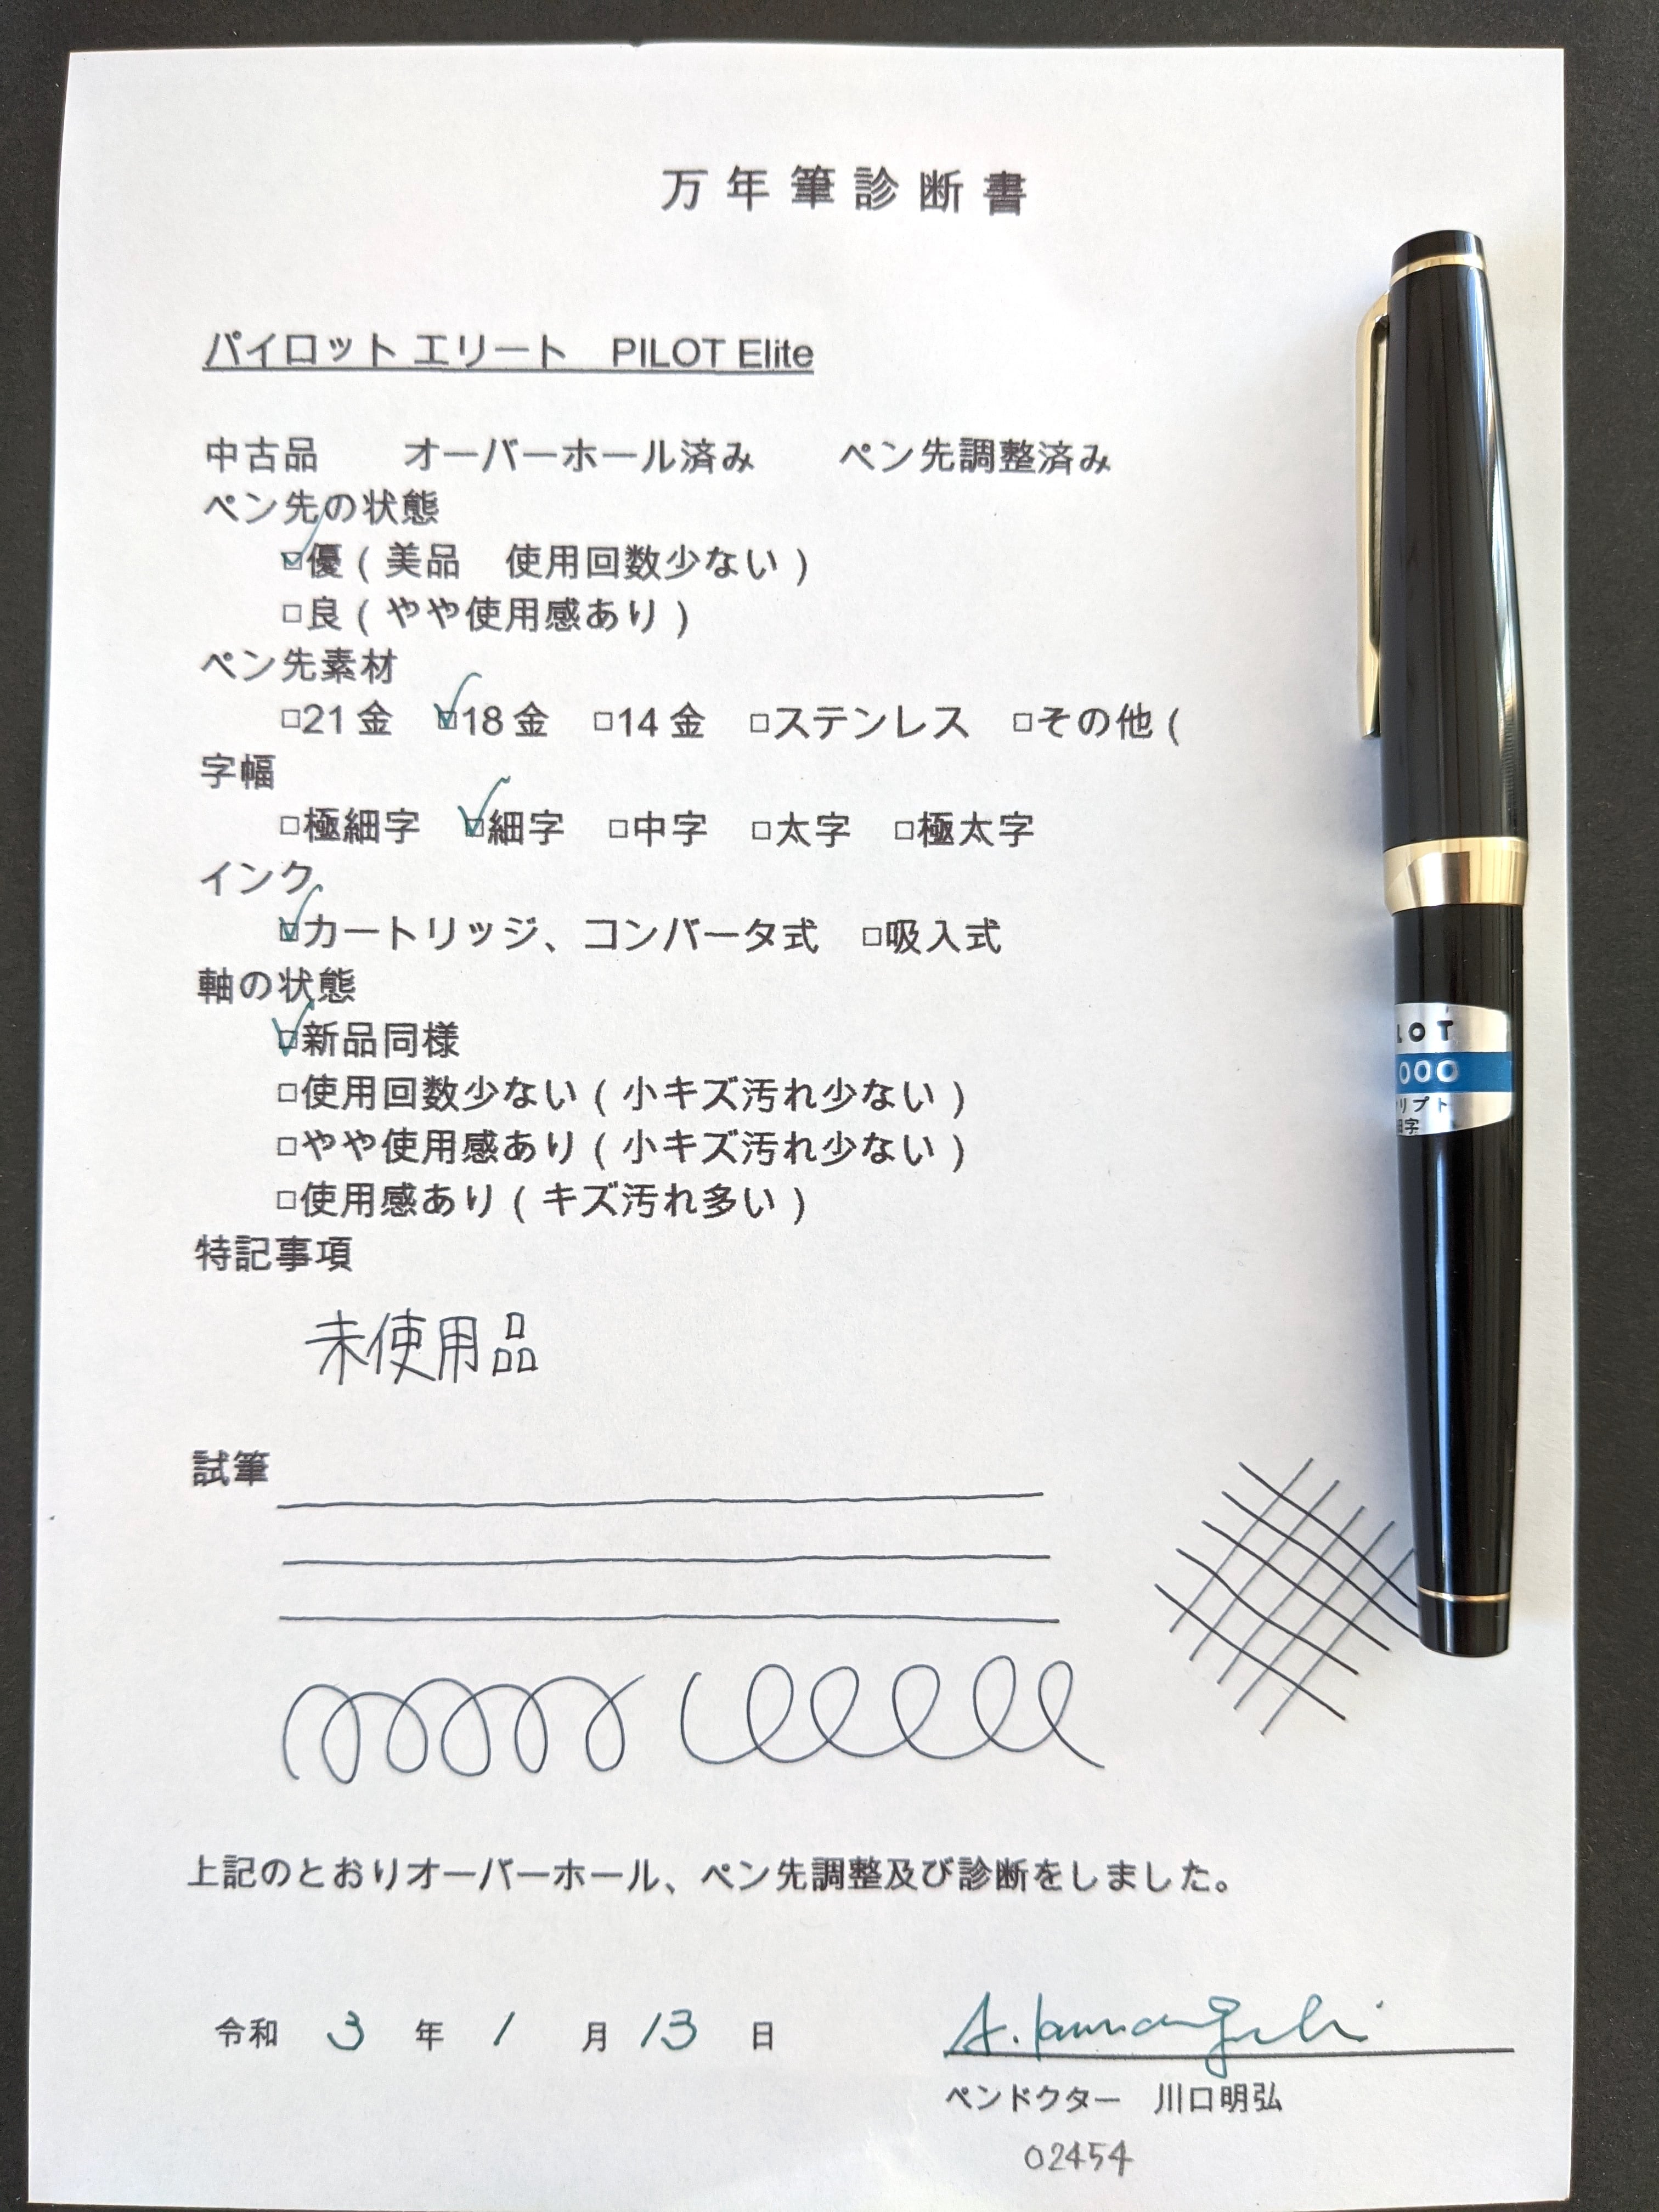 万年筆診断書
パイロット エリート　PILOT Elite
中古品　　オーバーホール済み　　ペン先調整済み
ペン先の状態
☑優（美品　使用回数少ない）
□良（やや使用感あり）
ペン先素材
□21金　☑18金　□14金　□ステンレス　□その他（
字幅
□極細字　☑細字　□中字　□太字　□極太字
インク
☑カートリッジ、コンバータ式　□吸入式
軸の状態
☑新品同様
□使用回数少ない（小キズ汚れ少ない）
□やや使用感あり（小キズ汚れ少ない）
□使用感あり（キズ汚れ多い）
特記事項
未使用品
試筆
上記のとおりオーバーホール、ペン先調整及び診断をしました。
令和　3　年　1　月　13　日
A. Kawaguchi
ペンドクター　川口明弘
02454
LOT
000
リプト
細字